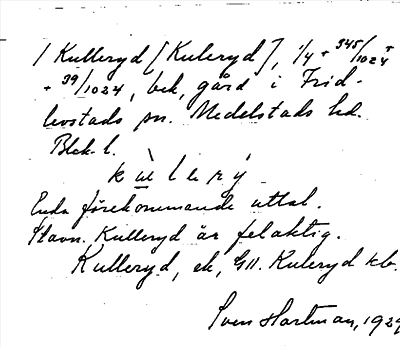 / Kulleryd [Kuleryd], 1/4 + 345/1024 +
+ 39/1024, bek, gård i Frid-
levstads sn. Medelstads hd.
Blek. l.
k ù l e r ý
Enda förekommande uttal.
Stavn. Kulleryd är felaktig.
Kulleryd, ek, GU. Kuleryd kb.
Sven Hartman, 1924